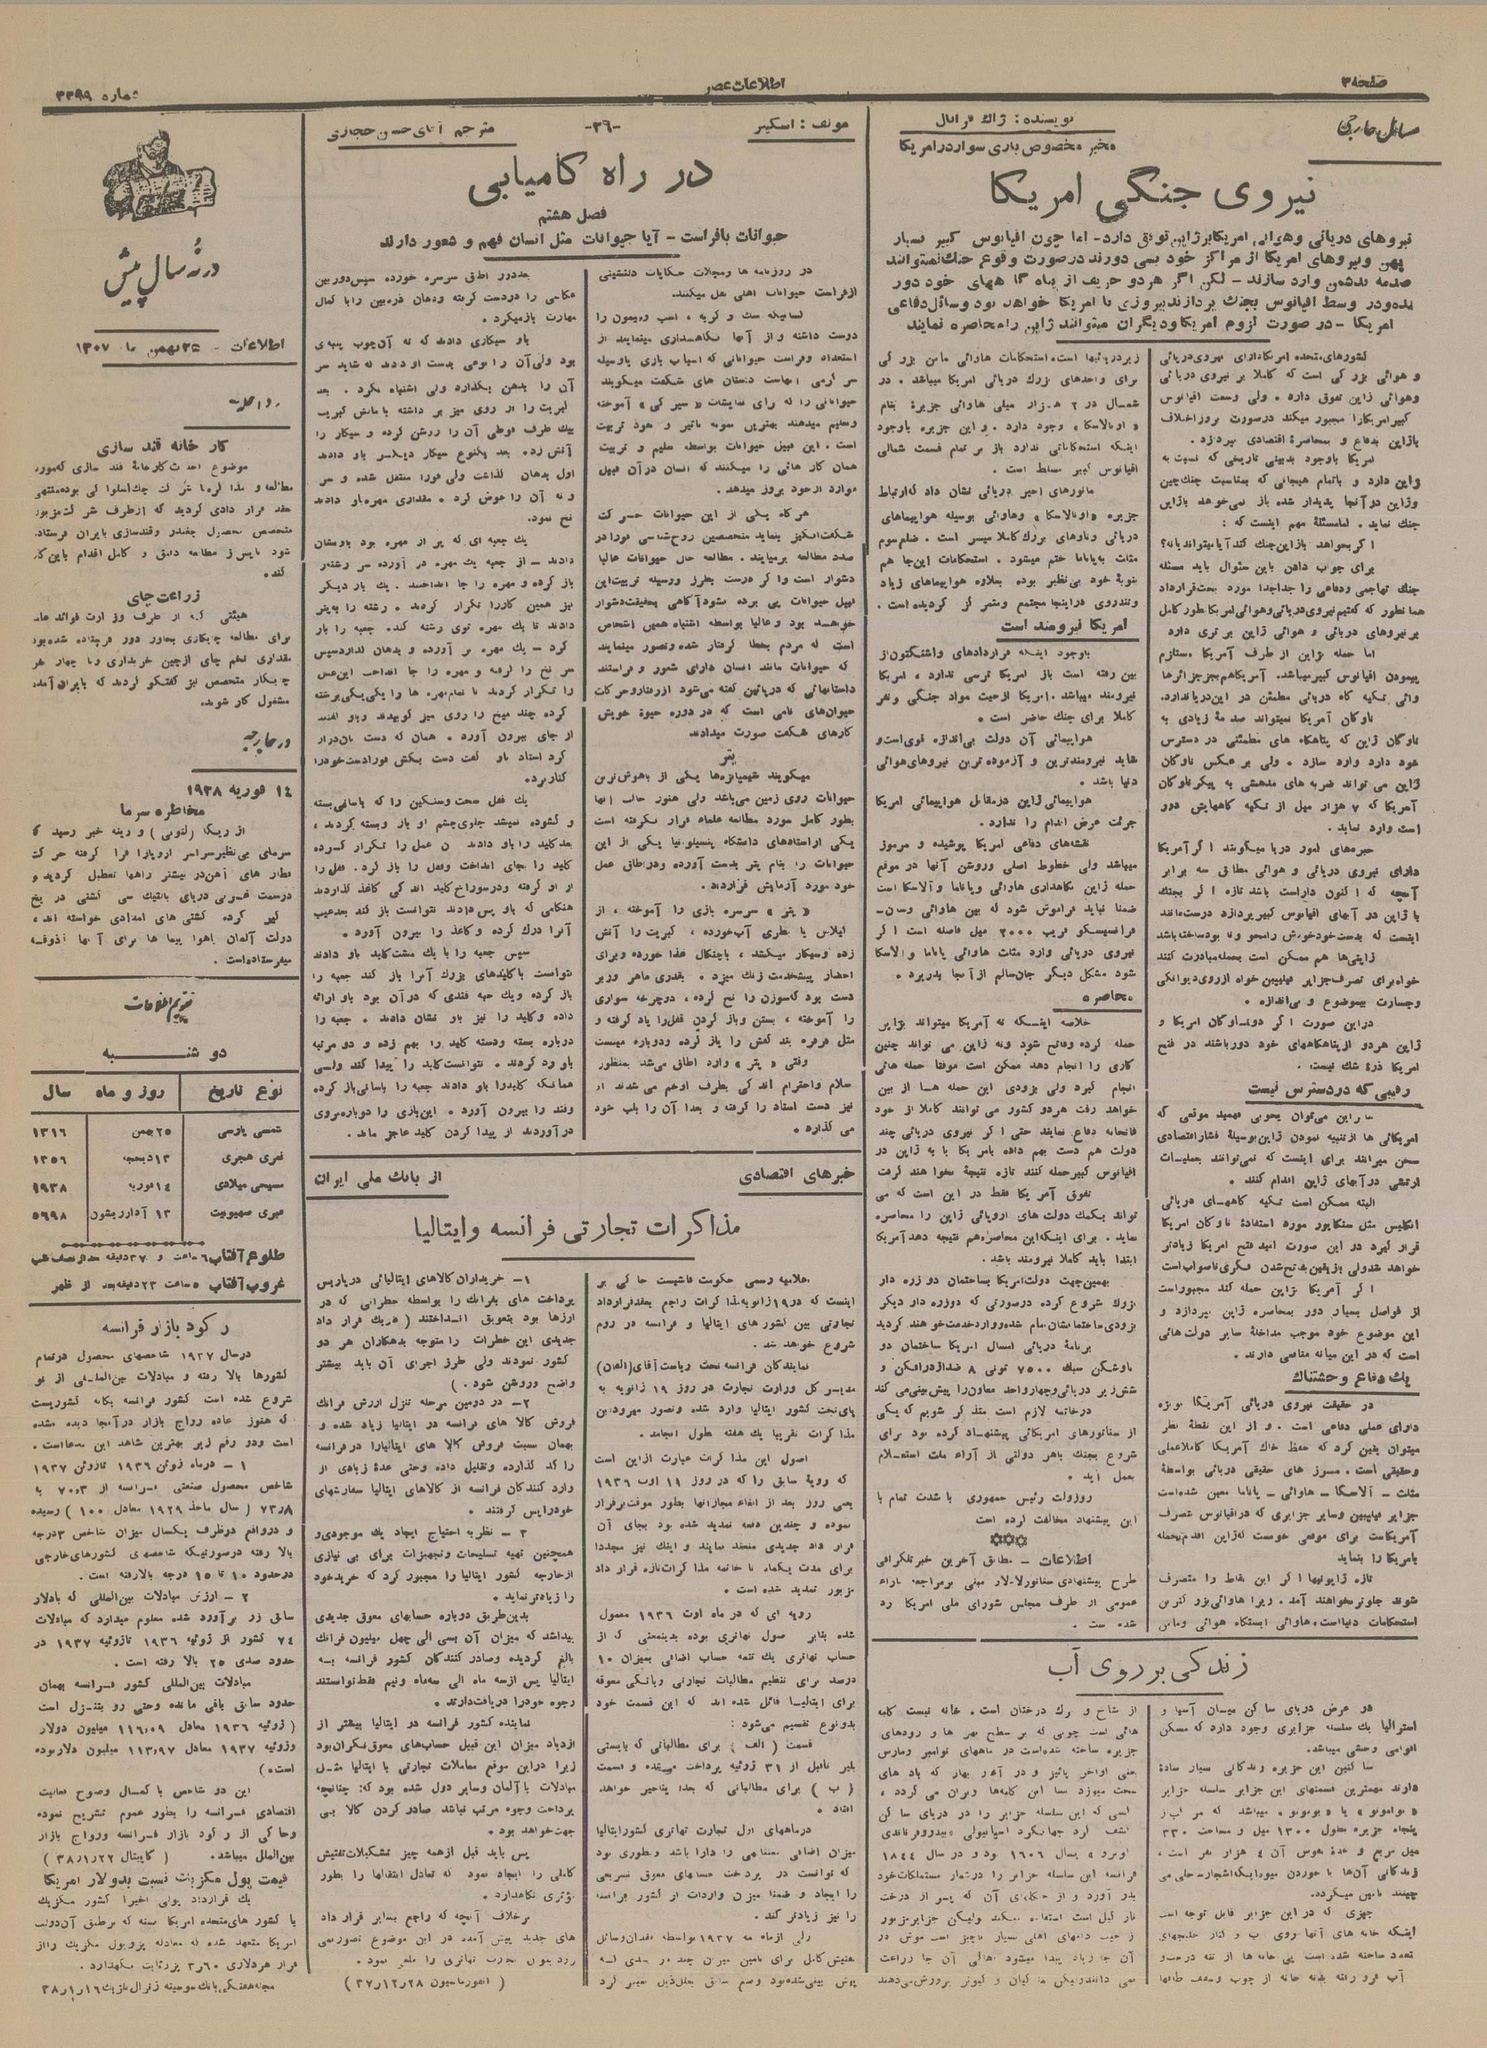 صفحه ۳
اطلاعات عصر
شماره ۳۳۹۹
مسائل خارجی
نویسنده : ژاک
مخبر مخصوص پاری سوار در امریکا
نیروی جنگی امریکا
نیروهای دریائی وهوائی امریکا بر ژاپن تفوق دارد - اما چون اقیانوس کبیر بسیار
پهن ونیروهای امریکا از مراکز خود نمی
صدمه بدشمن وارد سازند - لکن اگر هر دو حریف از پناه گاههای خود دور
شده و در وسط اقیانوس بجنگ پردازند پیروزی با امریکا خواهد بود وسائل دفاعی
امریکا - در صورت لزوم امریکا ودیگران میتوانند ژاپن را محاصره نمایند
کشورهای متحده امریکا دارای نیروی دریائی
و هوائی بزرگی است که کاملا بر نیروی دریائی
وهوائی ژاپن تفوق دارد . ولی وسعت اقیانوس
کبیر امریکا را مجبور میکند درصورت بروز اختلاف
با ژاپن بدفاع و محاصرۀ اقتصادی بپردازد .
امریکا باوجود بدبینی تاریخی که نسبت به
ژاپن دارد و باتمام هیجانی که بمناسبت جنگ چین
وژاپن در آنجا پدیدار شده باز نمی‌خواهد با ژاپن
جنگ نماید . اما مسئلۀ مهم اینست که :
اگر بخواهد با ژاپن جنگ کند آیا میتواند یا نه؟
برای جواب دادن باین سئوال باید مسئله
جنگ تهاجمی ودفاعی را جداجدا مورد بحث قرارداد
همانطور که گفتیم نیروی دریائی وهوائی امریکا بطور کامل
بر نیروهای دریائی و هوائی ژاپن برتری دارد
اما حمله بژاپن از طرف آمریکا مستلزم
پیمودن اقیانوس کبیر میباشد . آمریکا هم بجز جزائر ها
وائی تکیه گاه دریائی مطمئن در این دریا ندارد.
ناوگان آمریکا نمیتواند صدمۀ زیادی به
ناوگان ژاپن که پناهگاه های مطمئنی در دسترس
خود دارد وارد سازد . ولی بر عکس ناوگان
ژاپن می تواند ضربه های مدهشی به پیکر ناوگان
آمریکا که ۷ هزار میل از تکیه گاههایش دور
است وارد نماید .
خبره‌های امور دریا میگویند اگر آمریکا
دارای نیروی دریائی و هوائی مطابق سه برابر
آنچه که اکنون داراست باشد تازه اگر بجنگ
با ژاپن در آبهای اقیانوس کبیر بپردازد درست مانند
اینست که بدست خود خویش را محو و نابود ساخته باشد
ژاپنی‌ها هم ممکن است بحمله مبادرت کنند
خواه برای تصرف جزایر فیلیپین خواه از روی دیوانگی
وجسارت بیموضوع و بی‌اندازه .
دراین صورت اگر دو ناوگان امریکا و
ژاپن هردو از پناهگاههای خود دور باشند در فتح
امریکا ذرۀ شک نیست .
رقیبی که در دسترس نیست
بنا براین می‌توان بخوبی فهمید موقعی که
امریکائی ها از تنبیه نمودن ژاپن بوسیلۀ فشار اقتصادی
سخن میرانند برای اینست که نمی‌توانند بعملیات
ارتشی در آبهای ژاپن اقدام کنند .
البته ممکن است تکیه گاههای دریائی
انگلیس مثل سنگاپور مورد استفادۀ ناوگان امریکا
قرار گیرد در این صورت امید فتح امریکا زیادتر
خواهد شد ولی باز یقین به فتح شدن فکری ناصواب است
اگر آمریکا بژاپن حمله کند مجبور است
از فواصل بسیار دور بمحاصره ژاپن بپردازد و
این موضوع خود موجب مداخلۀ سایر دولت هائی
است که در این میانه منافعی دارند .
یک دفاع وحشتناک
در حقیقت نیروی دریائی آمریکا بویژه
دارای عملی دفاعی است . و از این نقطۀ نظر
میتوان یقین کرد که حفظ خاک آمریکا کاملا عملی
وحقیقی است . مسرز های حقیقی دریائی بواسطۀ
مثلث - آلاسکا - هاوائی - پاناما معین شده است
جزایر فیلیپین وسایر جزایری که در اقیانوس بتصرف
آمریکاست برای موقعی خوبست که ژاپن اقدام بحمله
بامریکا را بنماید
تازه ژاپونیها اگر این نقاط را متصرف
شوند جلوتر نخواهند آمد . زیرا هاوائی بزرگترین
استحکامات دنیاست . هاوائی ایستگاه هوائی ومامن
زیر دریائیها است . استحکامات هاوائی مامن بزرگی
برای واحدهای بزرگ دریائی امریکا میباشد . در
شمال در ۲ هزار میلی هاوائی جزیرۀ بنام
« اونالاسکا » وجود دارد . و این جزیره باوجود
اینکه استحکاماتی ندارد باز بر تمام قسمت شمالی
اقیانوس کبیر مسلط است .
مانورهای اخیر دریائی نشان داد که ارتباط
جزیره « اونالاسکا » وهاوائی بوسیله هواپیماهای
دریائی وناوهای بزرگ کاملا میسر است . ضلع سوم
مثلث به پاناما ختم میشود . استحکامات این جا هم
بنوبۀ خود بی‌نظیر بوده بعلاوه هواپیماهای زیاد
وتندروی دراینجا مجتمع ومتمرکز گردیده است .
امریکا نیرومند است
باوجود اینکه قراردادهای واشنگتن از
بین رفته است باز امریکا ترسی ندارد ، امریکا
نیرومند میباشد . امریکا از حیث مواد جنگی ونفر
کاملا برای جنگ حاضر است .
هواپیمائی آن دولت بی‌اندازه قوی است و
شاید نیرومندترین و آزموده ترین نیروهای هوائی
دنیا باشد .
هواپیمائی ژاپن در مقابل هواپیمائی امریکا
جرئت عرض اندام را ندارد .
نقشه‌های دفاعی آمریکا پوشیده و مرموز
میباشد ولی خطوط اصلی وروشن آنها در موقع
حمله ژاپن نگاهداری هاوائی وپاناما و آلاسکا است
ضمنا نباید فراموش شود که بین هاوائی وسان-
فرانسیسکو قریب ۲۰۰۰ میل فاصله است اگر
نیروی دریائی وارد مثلث هاوائی پاناما و الاسکا
شود مشکل دیگر جان سالم از آنجا بدر برد .
محاصره
خلاصه اینکه نه آمریکا میتواند بژاپن
حمله کرده وفاتح شود ونه ژاپن می تواند چنین
کاری را انجام دهد ممکن است موقتا حمله هائی
انجام گیرد ولی بزودی این حمله ها از بین
خواهد رفت هردو کشور می توانند کاملا از خود
فاتحانه دفاع نمایند حتی اگر نیروی دریائی چند
دولت هم دست بهم داده با امریکا یا با ژاپن در
اقیانوس کبیر حمله کنند تازه نتیجۀ نخواهند گرفت
تفوق آمریکا فقط در این است که می
تواند بکمک دولت های اروپائی ژاپن را محاصره
نماید . برای اینکه این محاصره هم نتیجه دهد آمریکا
ابتدا باید کاملا نیرومند باشد .
بهمین جهت دولت امریکا بساختمان دو زره دار
بزرگ شروع کرده درصورتی که دو زره دار دیگر
بزودی ساختمانشان تمام شده ووارد خدمت خواهند گردید
برنامۀ دریائی امسال امریکا ساختمان دو
ناوشکن سبک ۷۵۰۰ تونی ۸ ضد اژدرافکن و
شش زیر دریائی وچهار واحد معاون را پیش بینی می کند
درخاتمه لازم است متذکر شویم که یکی
از سناتورهای امریکائی پیشنهاد کرده بود برای
شروع بجنگ باهر دولتی از آراء ملت استعلام
بعمل آید .
روزولت رئیس جمهوری با شدت تمام با
این پیشنهاد مخالفت کرده است
اطلاعات - مطابق آخرین خبر تلگرافی
طرح پیشنهادی سناتور لادلار مبنی بر مراجعه باراء
عمومی از طرف مجلس شورای ملی امریکا رد
شده است .
زندگی بر روی آب
در عرض دریای ساکن میان آسیا و
استرالیا یک سلسله جزایری وجود دارد که مسکن
اقوامی وحشی میباشد .
ساکنین این جزیره زندگانی بسیار سادۀ
دارند مهمترین قسمتهای این جزایر سلسله جزایر
میباشد که مرکب از
پنجاه جزیره بطول ۱۳۰۰ میل و مساحت ۳۳۰
میل مربع و عدۀ نفوس آن ۴ هزار نفر است ،
زندگانی آن‌ها با خوردن میوه اینکه اشجار محلی می
چینند تامین میگردد .
چیزی که در این جزایر قابل توجه است
اینکه خانه های آنها روی آب و کنار خلیجهای
متعدد ساخته شده است پی خانه ها از تنه درخت و
آب فرو رفته بدنه خانه از چوب وسقف طاقها
از شاخ و برگ درختان است . خانه نیست کلبه
هائی است چوبی که بر سطح نهر ها و رودهای
جزیره ساخته شده است در ماههای نوامبر ومارس
یعنی اواخر پائیز و در آغاز بهار که باد های
سخت میوزد بسا این کلبه‌ها ویران می گردد ،
کسی که این سلسله جزایر را در دریای ساکن
کشف کرد جهانگرد اسپانیولی
بسال ۱۶۰۶ بود و در سال ۱۸۴۴
فرانسه این سلسله جزایر را در شمار مستملکات خود
در آورد
مؤلف : اسکینر
-۳۶-
مترجم آقای حسن حجازی
در راه کامیابی
فصل هشتم
حیوانات بافراست - آیا حیوانات مثل انسان فهم و شعور دارند
در روزنامه ها ومجلات حکایات دلنشینی
ازفراست حیوانات اهلی نقل میکنند .
کسانیکه سگ و گربه ، اسب ومیمون را
دوست داشته و از آنها نگاهداری مینمایند از
استعداد وفراست حیواناتی که اسباب بازی یا وسیله
سرگرمی آنهاست داستان های شگفت میگویند
حیواناتی را که برای نمایشات « سیرک » آموخته
وتعلیم میدهند بهترین نمونه تاثیر و نفوذ تربیت
است . این قبیل حیوانات بواسطه تعلیم و تربیت
همان کار هائی را میکنند که انسان در آن قبیل
موارد از خود بروز میدهد .
هر گاه یکی از این حیوانات حرکت
شگفت انگیز بنماید متخصصین روح شناسی فورا در
صدد مطالعه برمیایند . مطالعه حال حیوانات غالبا
دشوار است واگر درست بطرز ووسیله تربیت این
قبیل حیوانات پی برده نشود آگاهی بحقیقت دشوار
خواهد بود وغالبا بواسطه اشتباه همین اشخاص
است که مردم بخطا گرفتار شده وتصور مینمایند
که حیوانات مانند انسان دارای شعور و فراستند
داستانهائی که در پائین گفته می‌شود از رفتار وحرکات
حیوان‌های نامی است که در دوره حیوة خویش
کارهای شگفت صورت میدادند
پتر
میگویند شمپانزه‌ها یکی از باهوش‌ترین
حیوانات روی زمین می‌باشد ولی هنوز حالت آنها
بطور کامل مورد مطالعه علماء قرار نگرفته است
یکی از استادهای دانشگاه پنسیلوانیا یکی از این
حیوانات را بنام پتر بدست آورده ودراطاق عمل
خود مورد آزمایش قرار داد .
« پتر » سرسره بازی را آموخته ، از
گیلاس یا بطری آب خورده ، کبریت را آتش
زده وسیگار میکشد ، باچنگال غذا خورده وبرای
احضار پیشخدمت زنگ میزد . بقدری ماهر وزبر
دست بود که سوزن را نخ کرده ، دوچرخه سواری
را آموخته ، بستن وباز کردن قفل را یاد گرفته و
مثل فرفره بند کفش را باز کرده ودوباره میبست
وقتی « پتر » وارد اطاق می‌شد بمنظور
سلام واحترام اندکی بطرف او خم می شدند او
نیز دست استاد را گرفته و بعدا آن را بلب خود
می گذارد .
بعد دور اطاق سرسره خورده سپس دوربین
عکاسی را دردست گرفته ودهان ذره‌بین را با کمال
مهارت بازمیکرد .
باو سیگاری دادند که ته آن چوب پنبه‌ی
بود ولی آن را نوعی بدست او دادند که شاید سر
آن را بدهن بگذارد ولی اشتباه نکرد . بعد
کبریت را از روی میز بر داشته با مالش کبریت
بیک طرف قوطی آن را روشن کرده و سیگار را
آتش زد . بعد یکنوع سیگار دیگر باو دادند
اول بدهان گذاشت ولی فورا منتقل شده و سر
و ته آن را عوض کرد . مقداری مهره باو دادند
نخ نمود.
یک جعبه ای که پر از مهره بود باو نشان
دادند - از جعبه یک مهره در آورده سر رشته را
باز کرده و مهره را جا انداخت . یک بار دیگر
نیز همین کار را تکرار کردند . رشته را به پتر
دادند تا یک مهره توی رشته کند . جعبه را باز
کرد - یک مهره بر آورده و بدهان گذارد سپس
سر نخ را گرفته و مهره را جا انداخت این عمل
را تکرار کردند تا تمام مهره ها را یکی یکی برشته
کرده چند میخ را روی میز کوبیدند وباو گفتند
از جای بیرون آورد . همان که دست بان دراز
کرد استاد باو گفت دست بکش فورا دست خود را
کنار برد .
یک قفل سخت وسنگین را که باسانی بسته
و گشوده نمیشد جلوی چشم او باز وبسته کردند ،
بعد کلید را باو دادند آن عمل را تکرار کرده
کلید را بجای انداخت وقفل را باز کرد . قفل را
از او گرفته ودرسوراخ کلید اندکی کاغذ گذاردند
هنگامی که باو پس دادند نتوانست باز کند بعد عیب
آنرا درک کرده و کاغذ را بیرون آورد .
سپس جعبه را با یک مشت کلید باو دادند
نتوانست با کلیدهای بزرگ آنرا باز کند جعبه را
باز کرده ویک حبه قندی که در آن بود باو ارائه
داده وکلید را نیز باو نشان دادند . جعبه را
درباره بسته ودسته کلید را بهم زده و دو مرتبه
باو رد کردند . نتوانست کلید را پیدا کند ولی
همانکه کلید را باو دادند جعبه را باسانی باز کرده
وقند را بیرون آورد . این بازی را دوباره روی
در آوردند از پیدا کردن کلید عاجز ماند .
خبرهای اقتصادی
از بانک ملی ایران
مذاکرات تجارتی فرانسه وایتالیا
اعلامیه رسمی حکومت فاشیست حاکی بر
اینست که در ۱۹ ژانویه مذاکرات راجع بعقد قرارداد
تجارتی بین کشورهای ایتالیا و فرانسه در روم
شروع خواهد شد
نمایندگان فرانسه تحت ریاست آقای (الفان)
مدیر کل وزارت تجارت در روز ۱۹ ژانویه به
پای تخت کشور ایتالیا وارد شده وتصور میرود این
مذاکرات تقریبا یک هفته طول انجامد .
اصول این مذاکرت عبارت ازاین است
که رویۀ سابق را که در روز ۱۱ اوت ۱۹۳۶
یعنی روز بعد از الغاء مجازاتها بطور موقت برقرار
نموده و چندین دفعه تمدید شده بود بجای آن
قرار داد جدیدی منعقد نمایند و اینک نیز مجددا
برای مدت یکماه تا خاتمه مذاکرات تازه قرار داد
مزبور تمدید شده است .
رویه ای که در ماه اوت ۱۹۳۶ معمول
شده بنابر اصول تهاتری بوده بدینمعنی که از
حساب تهاتری یک تتمه حساب اضافی بمیزان ۱۰
درصد برای تنظیم مطالبات تجارتی وبانکی معوقه
برای ایتالیا قائل شده اند که این قسمت خود
بدو نوع تقسیم می‌شود :
قسمت ( الف ) برای مطالباتی که بایستی
قبل از ۳۱ ژوئیه پرداخت میشده و قسمت
( ب ) برای مطالباتی که بعدا بتاخیر خواهد
افتاد .
درماههای اول تجارت تهاتری کشور ایتالیا
میزان اضافی معتنابهی را دارا باشد وبطوری بود
که توانست در پرداخت حسابهای معوق تسریعی
را ایجاد و ضمنا میزن واردات از کشور فرانسه
را نیز زیادتر کند .
۱- خریداران کالاهای ایتالیائی درپاریس
پرداخت های بفرانک را بواسطه خطراتی که در
ارزها بود بتعویق انداختند ( دریک قرار داد
جدیدی این خطرات را متوجه بدهکاران هر دو
کشور نمودند ولی طرز اجرای آن باید بیشتر
واضح وروشن شود . )
۲- در دومین مرحله تنزل ارزش فرانک
فروش کالا های فرانسه در ایتالیا زیاد شده و
بهمان نسبت فروش کالا های ایتالیا را در فرانسه
را کد گذارده وتقلیل داده وحتی عدۀ زیادی از
وارد کنندگان فرانسه از کالاهای ایتالیا سفارشهای
خود را پس گرفتند .
۳ - نظر به احتیاج ایجاد یک موجودی و
همچنین تهیه تسلیحات وتجهیزات برای بی نیازی
از خارجه کشور ایتالیا را مجبور کرد که خرید خود
را زیادتر نماید .
بدین طریق دوباره حسابهای معوق جدیدی
پیدا شد که میزان آن بسی الی چهل میلیون فرانک
بالغ گردیده وصادر کنندگان کشور فرانسه به
ایتالیا پس از سه ماه الی سه ماه ونیم فقط توانستند
وجوه خود را دریافت دارند .
نماینده کشور فرانسه در ایتالیا بیشتر از
ازدیاد میزان این قبیل حساب‌های معوق نگران بود
زیرا دراین موقع معاملات تجارتی با ایتالیا مثل
مبادلات با آلمان وسایر دول شده بود که : چنانچه
پرداخت وجوه مرتب نباشد صادر کردن کالا بی
جهت خواهد بود .
پس باید قبل ازهمه چیز تشکیلات تفتیش
کاملی را ایجاد نمود که تعادل انتقالها را بطور
مؤثری نگاهدارد .
برخلاف آنچه که راجع بسایر قرار داد
های جدید پیش آمده در این موضوع تصور نمی
رود بتوان تجارت تهاتری را ملغی نمود .
( انفورماسیون ۲۸ر۱۲ر۳۷ )
درنه سال پیش
اطلاعات - ۲۵ بهمن ماه ۱۳۰۷
در داخله
کار خانه قند سازی
موضوع احداث کارخانۀ قند سازی که مورد
مطالعه و مذاکره با شرکت چک اسلواکی بوده منتهی
بعقد قرار دادی گردید که از طرف شرکت مزبور
متخصص محصول چغندر وقند سازی بایران فرستاده
شود تا پس از مطالعه دقیق و کامل اقدام باین کار
کند .
زراعت چای
هیئتی که از طرف وزارت فوائد عامه
برای مطالعه چایکاری بخاور دور فرستاده شده بود
مقداری تخم چای از چین خریداری وبا چهار نفر
چایکار متخصص نیز گفتگو کردند که بایران آمده
مشغول کار شوند .
در خارجه
۱۴ فوریه ۱۹۳۸
مخاطره سرما
از ریگا (لتونی) و وینه خبر رسید که
سرمای بی‌نظیر سراسر اروپا را فرا گرفته حرکت
قطار های آهن در بیشتر راهها تعطیل گردید و
درسمت غربی دریای بالتیک سی کشتی در یخ
گیر کرده کشتی های امدادی خواسته اند ،
دولت آلمان باهوا پیما ها برای آنها آذوقه
میفرستاده است .
تقویم اطلاعات
دو شنبه
نوع تاریخ | روز و ماه | سال
شمسی پارسی | ۲۵ بهمن | ۱۳۱۶
قمری هجری | ۱۳ ذیحجه | ۱۳۵۶
مسیحی میلادی | ۱۴ فوریه | ۱۹۳۸
عبری صهیونیت | ۱۳ آدار ریشون | ۵۶۹۸
طلوع آفتاب ۶ ساعت و ۴۷ دقیقه بعد از نصف شب
غروب آفتاب ۵ ساعت ۲۳ دقیقه بعد از ظهر
رکود بازار فرانسه
درسال ۱۹۳۷ شاخصهای محصول در تمام
کشورها بالا رفته و مبادلات بین‌المللی از نو
شروع شده است کشور فرانسه یگانه کشوریست
که هنوز اعاده رواج بازار در آنجا دیده نشده
است ودو رقم زیر بهترین شاهد این مدعاست .
۱ - درماه ژوئن ۱۹۳۶ تا ژوئن ۱۹۳۷
شاخص محصول صنعتی فرانسه از ۷۰ر۳ به
۷۳ر۸ ( سال ماخذ ۱۹۲۹ معادل ۱۰۰ ) رسیده
و درواقع درظرف یکسال میزان شاخص ۳ درجه
بالا رفته درصورتیکه شاخصهای کشورهای خارجی
درحدود ۱۰ تا ۱۵ درجه بالا رفته است .
۲ - ارزش مبادلات بین‌المللی که بادلار
سابق زر برآورد شده معلوم میدارد که مبادلات
۷۴ کشور از ژوئیه ۱۹۳۶ تا ژوئیه ۱۹۳۷ در
حدود صدی ۲۵ بالا رفته است .
مبادلات بین‌المللی کشور فرانسه بهمان
حدود سابق باقی مانده وحتی رو بتنزل است
( ژوئیه ۱۹۳۶ معادل ۱۱۶ر۰۹ میلیون دولار
وژوئیه ۱۹۳۷ معادل ۱۱۳ر۹۷ میلیون دلار بوده
است )
این دو شاخص با کمال وضوح فعالیت
اقتصادی فرانسه را بطور عموم تشریح نموده
وحاکی از رکود بازار فرانسه ورواج بازار
بین‌الملل میباشد . ( کاپیتال ۲۲ر۱ر۳۸ )
قیمت پول مکزیک نسبت بدولار امریکا
یک قرارداد پولی اخیرا کشور مکزیک
با کشور های متحده امریکا بسته که برطبق آن دولت
امریکا متعهد شده که معادله پزوپول مکزیک را از
قرار هر دلاری ۳ر۶۰ پزو ثابت نگهدارد .